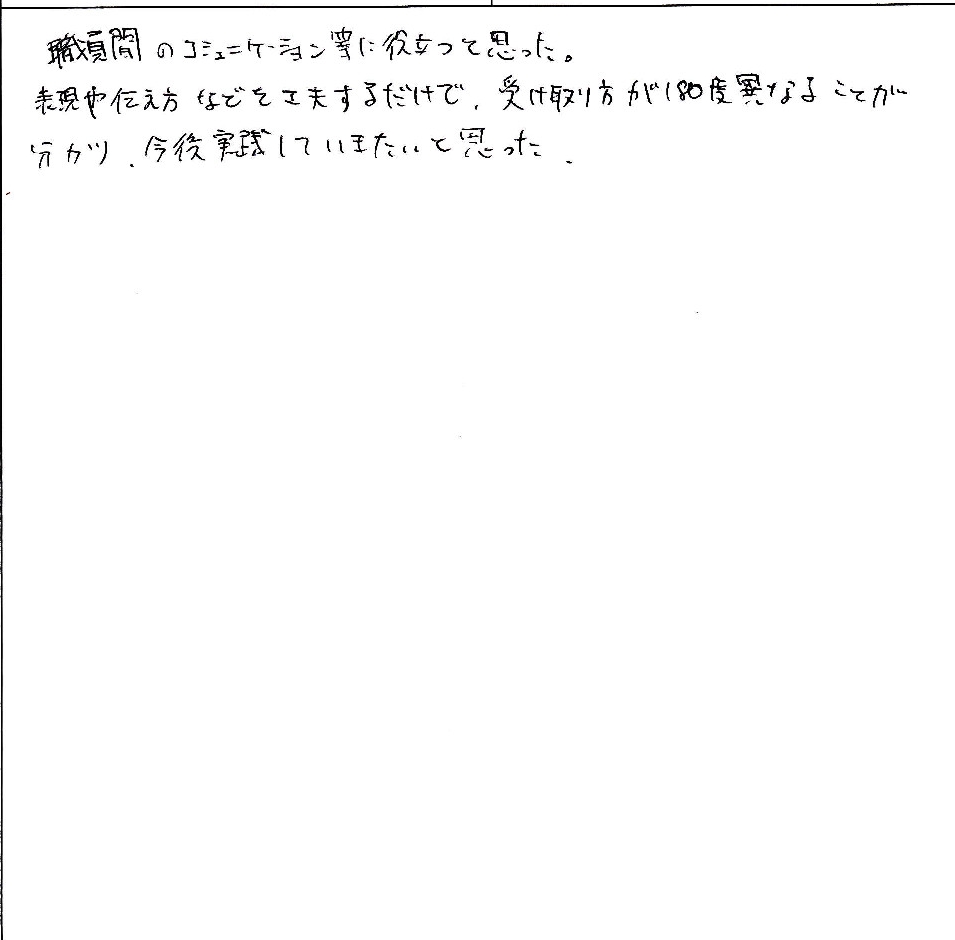 職員間のコミュニケーション等に役立つと思った。
表現や伝え方などを工夫するだけで、受け取り方が180度異なることが
分かり、今後実践していきたいと思った。